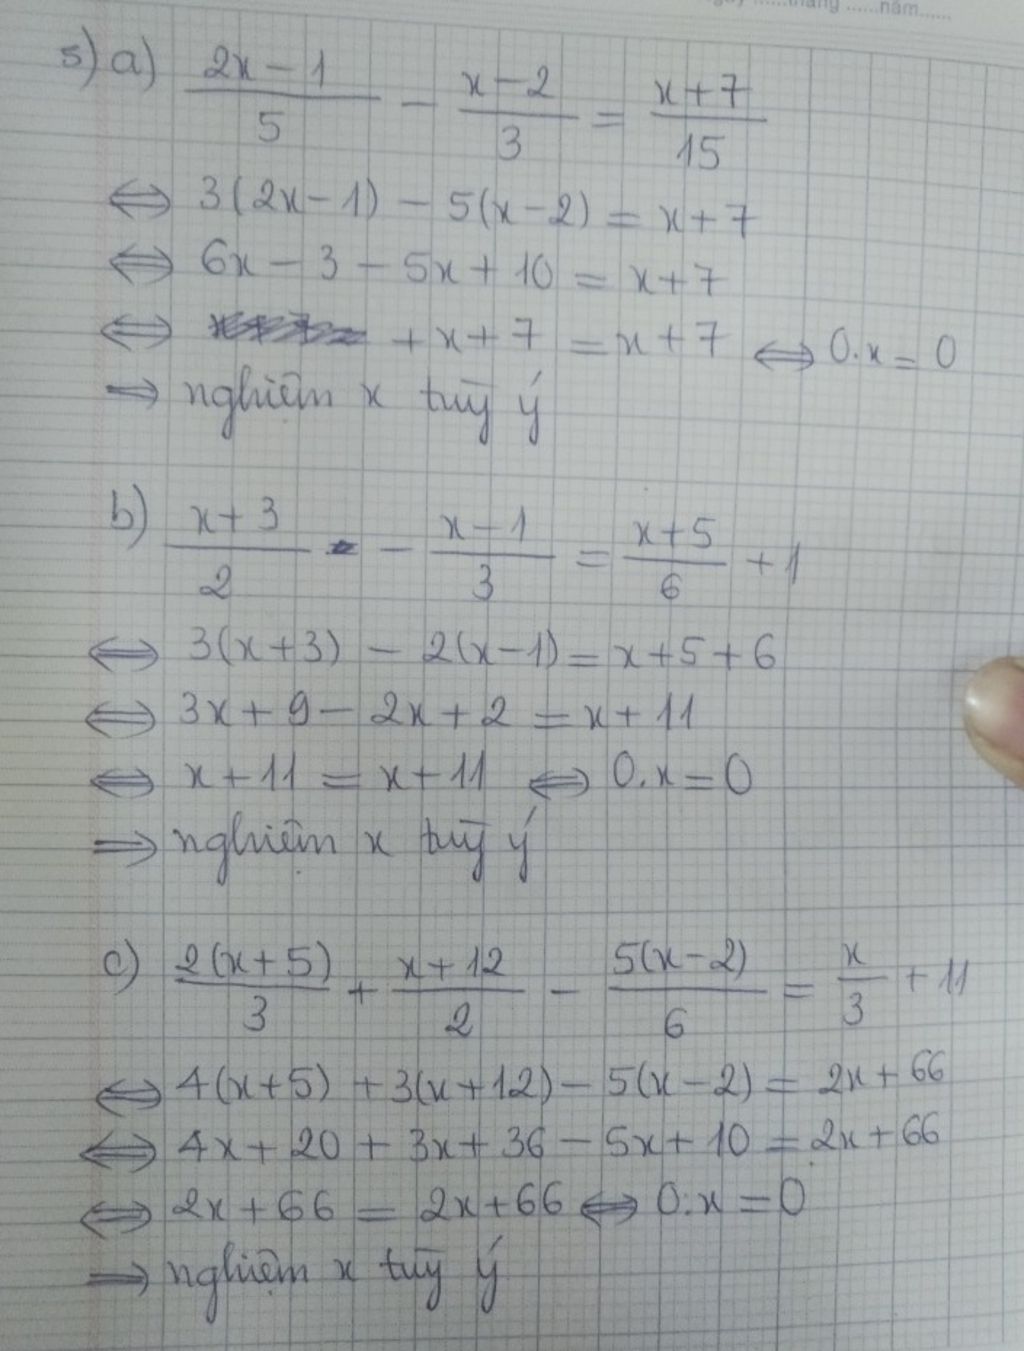 ngày ......tháng ......năm......
5) a) \frac{2x-1}{5} - \frac{x-2}{3} = \frac{x+7}{15}
⇔ 3(2x-1) - 5(x-2) = x+7
⇔ 6x - 3 - 5x + 10 = x+7
⇔ + x + 7 = x + 7 ⇔ 0.x = 0
⇒ nghiệm x tuỳ ý
b) \frac{x+3}{2} - \frac{x-1}{3} = \frac{x+5}{6} + 1
⇔ 3(x+3) - 2(x-1) = x+5+6
⇔ 3x + 9 - 2x + 2 = x + 11
⇔ x + 11 = x + 11 ⇔ 0.x = 0
⇒ nghiệm x tuỳ ý
c) \frac{2(x+5)}{3} + \frac{x+12}{2} - \frac{5(x-2)}{6} = \frac{x}{3} + 11
⇔ 4(x+5) + 3(x+12) - 5(x-2) = 2x + 66
⇔ 4x + 20 + 3x + 36 - 5x + 10 = 2x + 66
⇔ 2x + 66 = 2x + 66 ⇔ 0.x = 0
⇒ nghiệm x tuỳ ý